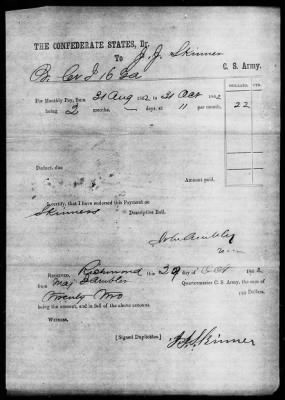 THE CONFEDERATE STATES, Dr.
To J. J. Skinner
Co. I 16 Ga C. S. Army.
DOLLARS. CTS.
For Monthly Pay, from 31 Aug 1862 to 31 Oct 1862
being 2 months, days, at 11 per month, 22
Deduct, due
Amount paid,
I certify, that I have endorsed this Payment on
Skinners Descriptive Roll.
RECEIVED, Richmond this 29 day of Oct 186
from Maj Ambler Quartermaster C. S. Army, the sum of
Twenty Two Dollars,
being the amount, and in full of the above account.
Witness.
[Signed Duplicates.] J. J. Skinner